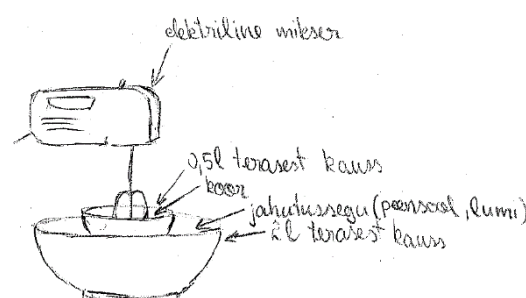 elektriline mikser
0,5l terasest kauss
koor
jahutussegu (peensool, lumi)
2l terasest kauss